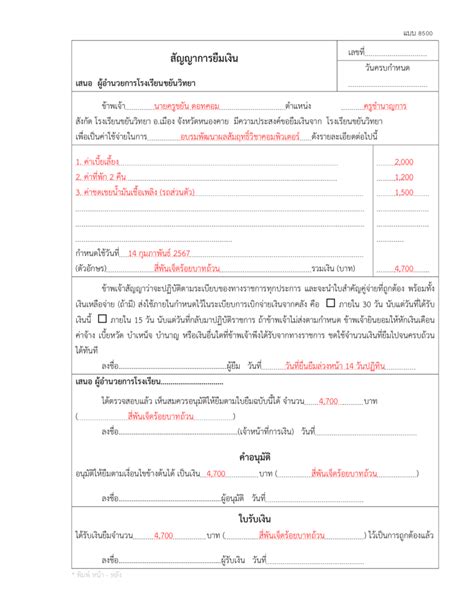 แบบ 8500
สัญญาการยืมเงิน
เลขที่..............................
วันครบกำหนด
เสนอ ผู้อำนวยการโรงเรียนขยันวิทยา
ข้าพเจ้า.........นายครูขยัน ตอทคอม...............ตำแหน่ง...............ครูชำนาญการ
สังกัด โรงเรียนขยันวิทยา อ.เมือง จังหวัดหนองคาย มีความประสงค์ขอยืมเงินจาก โรงเรียนขยันวิทยา
เพื่อเป็นค่าใช้จ่ายในการ.......อบรมพัฒนาผลสัมฤทธิ์วิชาคอมพิวเตอร์.......ดังรายละเอียดต่อไปนี้
1. ค่าเบี้ยเลี้ยง 2,000
2. ค่าที่พัก 2 คืน 1,200
3. ค่าชดเชยน้ำมันเชื้อเพลิง (รถส่วนตัว) 1,500
กำหนดใช้วันที่....14 กุมภาพันธ์ 2567....
(ตัวอักษร)..............สี่พันเจ็ดร้อยบาทถ้วน..............รวมเงิน (บาท) 4,700
ข้าพเจ้าสัญญาว่าจะปฏิบัติตามระเบียบของทางราชการทุกประการ และจะนำใบสำคัญคู่จ่ายที่ถูกต้อง พร้อมทั้ง
เงินเหลือจ่าย (ถ้ามี) ส่งใช้ภายในกำหนดไว้ในระเบียบการเบิกจ่ายเงินจากคลัง คือ ☐ ภายใน 30 วัน นับแต่วันที่ได้รับ
เงินนี้ ☐ ภายใน 15 วัน นับแต่วันที่กลับมาปฏิบัติราชการ ถ้าข้าพเจ้าไม่ส่งตามกำหนด ข้าพเจ้ายินยอมให้หักเงินเดือน
ค่าจ้าง เบี้ยหวัด บำเหน็จ บำนาญ หรือเงินอื่นใดที่ข้าพเจ้าพึงได้รับจากทางราชการ ชดใช้จำนวนเงินที่ยืมไปจนครบถ้วน
ได้ทันที
ลงชื่อ..............................ผู้ยืม วันที่..........วันที่ยื่นยืมล่วงหน้า 14 วันปฏิทิน.......
เสนอ ผู้อำนวยการโรงเรียน..............................
ได้ตรวจสอบแล้ว เห็นสมควรอนุมัติให้ยืมตามใบยืมฉบับนี้ได้ จำนวน....4,700..........บาท
(..............สี่พันเจ็ดร้อยบาทถ้วน..............)
ลงชื่อ..............................(เจ้าหน้าที่การเงิน) วันที่..............................
คำอนุมัติ
อนุมัติให้ยืมตามเงื่อนไขข้างต้นได้ เป็นเงิน...4,700...........บาท (..............สี่พันเจ็ดร้อยบาทถ้วน..............)
ลงชื่อ..............................ผู้อนุมัติ วันที่..............................
ใบรับเงิน
ได้รับเงินยืมจำนวน.......4,700.........บาท (.........สี่พันเจ็ดร้อยบาทถ้วน.........) ไว้เป็นการถูกต้องแล้ว
ลงชื่อ..............................ผู้รับเงิน วันที่..............................
* พิมพ์ หน้า - หลัง